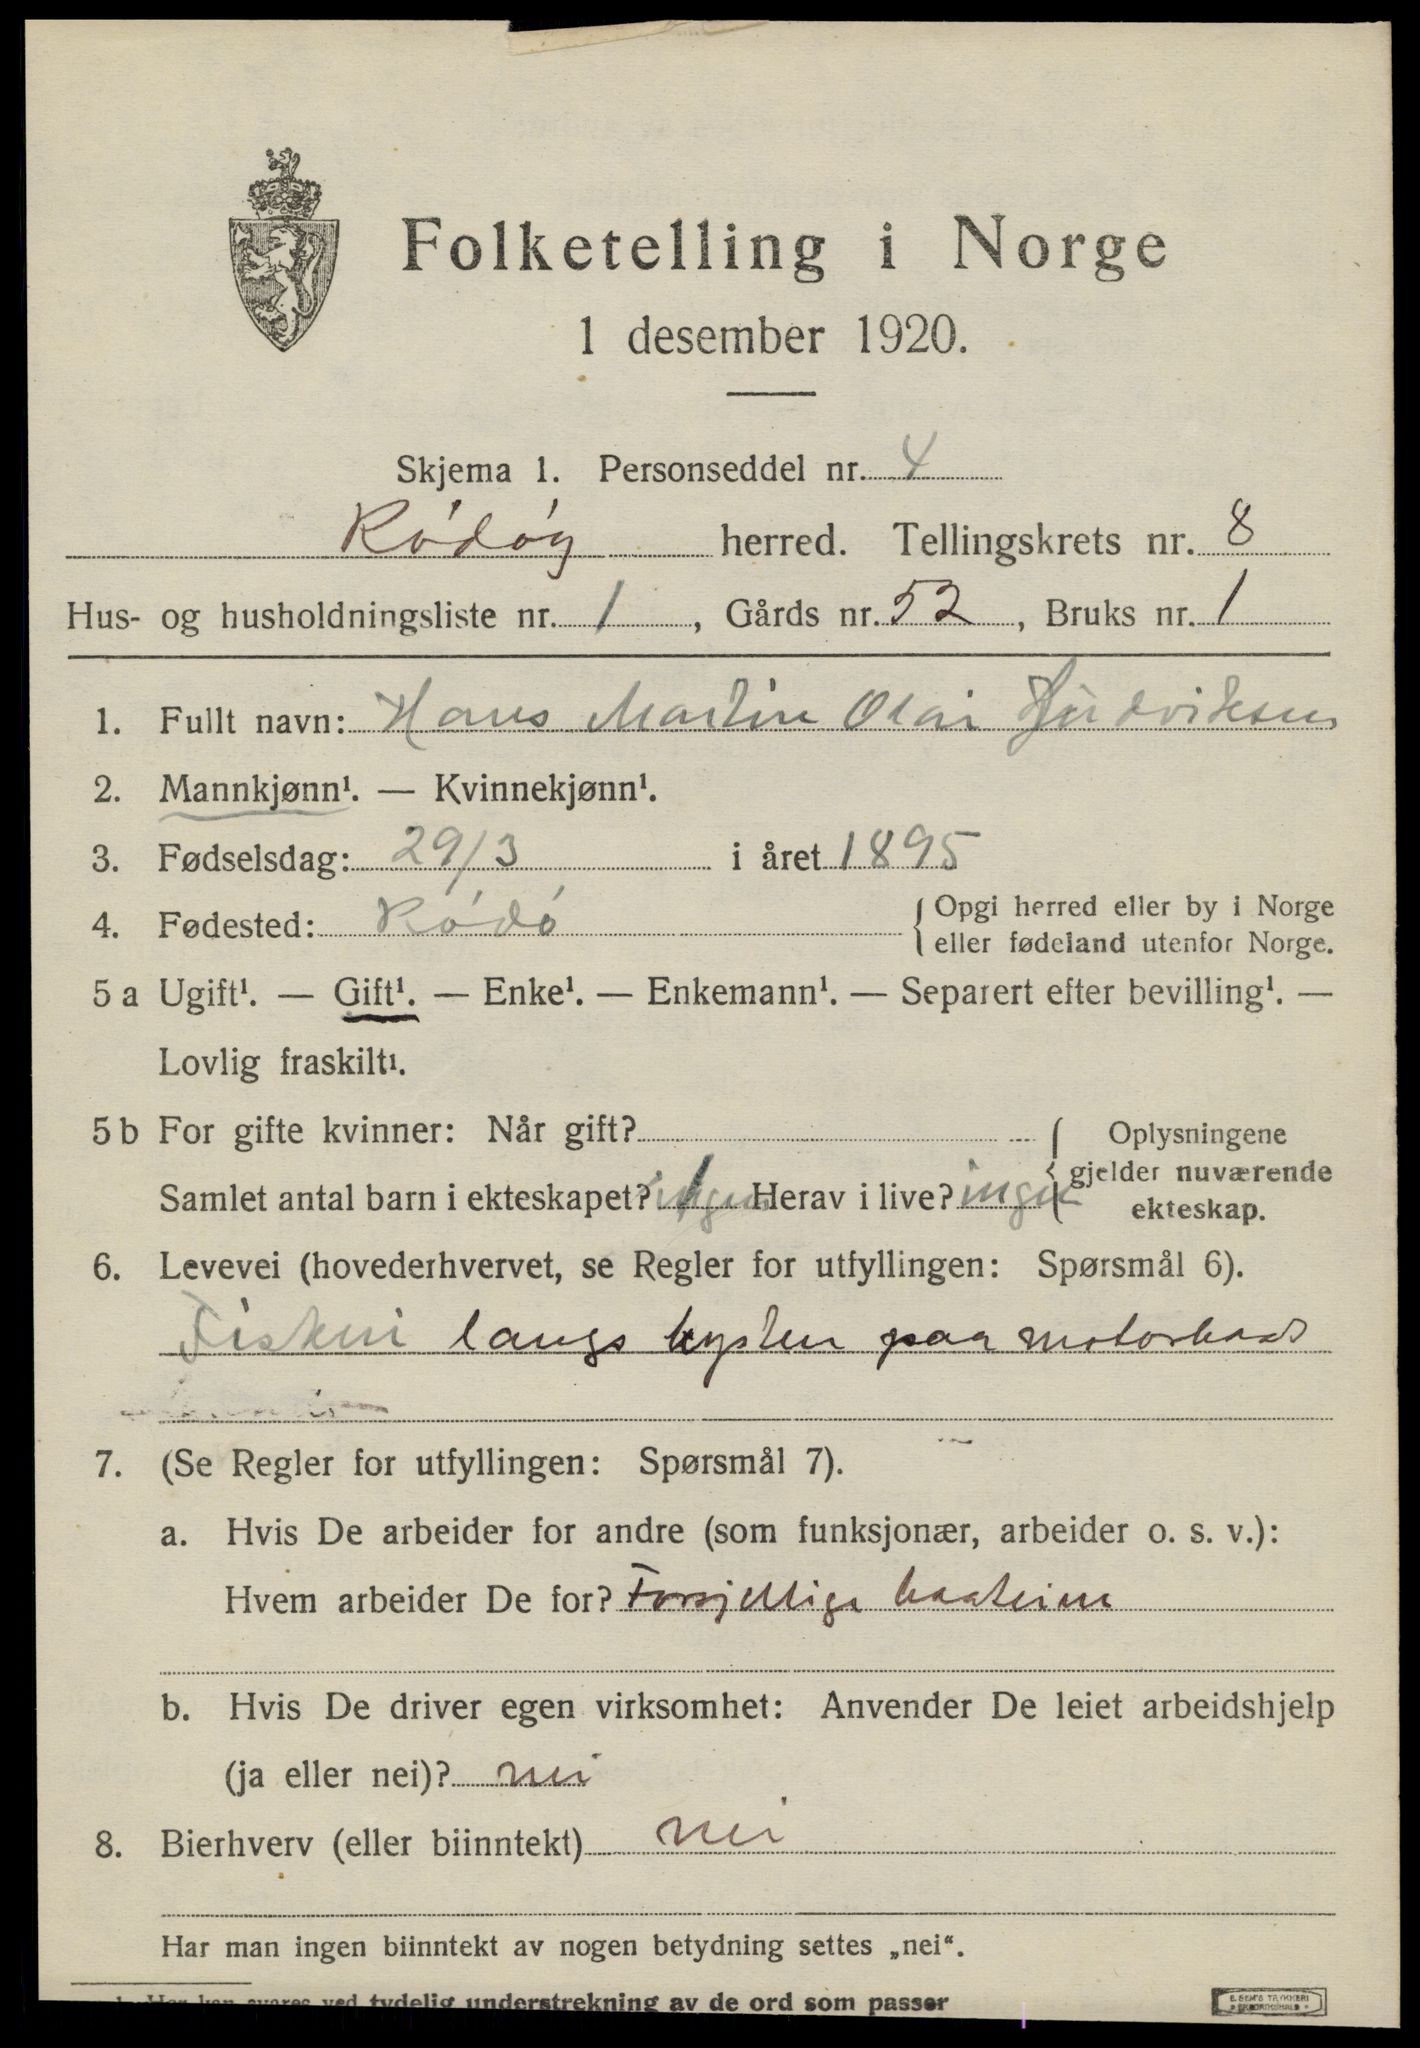 Folketelling i Norge
1 desember 1920.
Skjema 1. Personseddel nr. 4
Rødøy herred. Tellingskrets nr. 8
Hus- og husholdningsliste nr. 1, Gårds nr. 52, Bruks nr. 1
1. Fullt navn: Hans Martin Olai
2. Mannkjønn¹. — Kvinnekjønn¹.
3. Fødselsdag: 29/3 i året 1895
4. Fødested: Rødø { Opgi herred eller by i Norge
eller fødeland utenfor Norge.
5 a Ugift¹. — Gift¹. — Enke¹. — Enkemann¹. — Separert efter bevilling¹. —
Lovlig fraskilt¹.
5 b For gifte kvinner: Når gift? { Oplysningene
gjelder nuværende
Samlet antal barn i ekteskapet? ingen Herav i live? ingen
ekteskap.
6. Levevei (hovederhvervet, se Regler for utfyllingen: Spørsmål 6).
Fiskeri langs kysten paa motorbaad
7. (Se Regler for utfyllingen: Spørsmål 7).
a. Hvis De arbeider for andre (som funksjonær, arbeider o. s. v.):
Hvem arbeider De for? Forsjellige baateiere
b. Hvis De driver egen virksomhet: Anvender De leiet arbeidshjelp
(ja eller nei)? nei
8. Bierhverv (eller biinntekt) nei
Har man ingen biinntekt av nogen betydning settes „nei“.
1 Her kan svares ved tydelig understrekning av de ord som passer
E. SEM'S TRYKKERI
FREDRIKSHALD